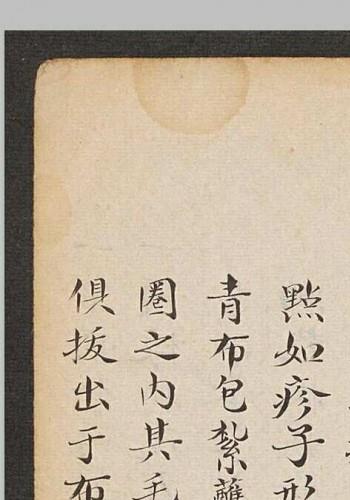 點如疹子形
青布包紮蘸
圈之内其毛
俱拔出于布